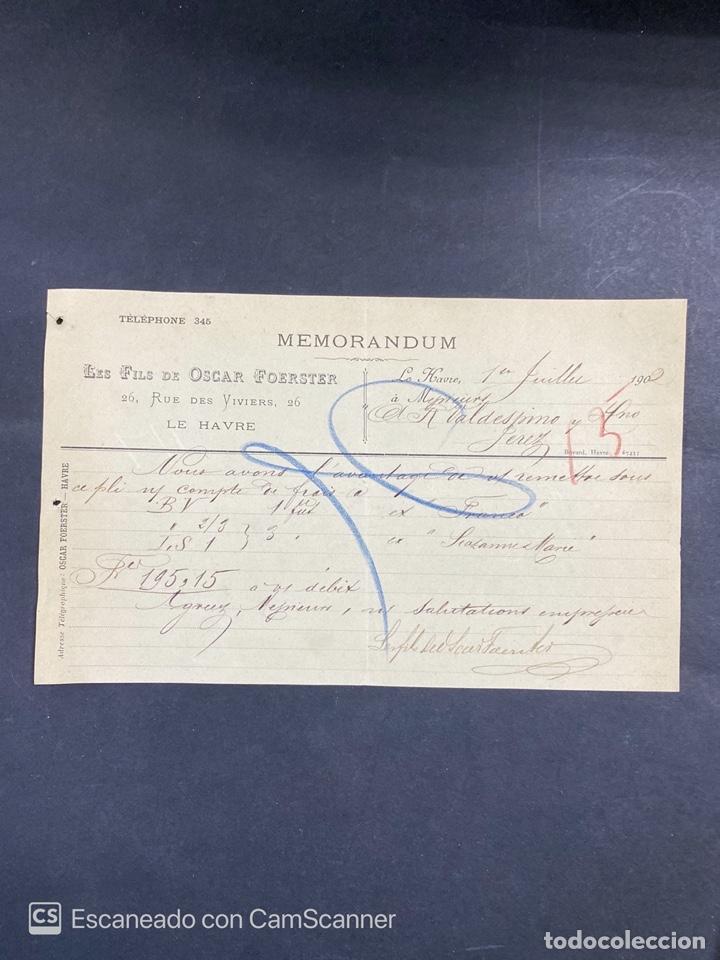 TÉLÉPHONE 345
MEMORANDUM
LES FILS DE OSCAR FOERSTER
26, RUE DES VIVIERS, 26
LE HAVRE
Le Havre, 1er Juillet 1902
à Messieurs
A R Valdespino y Hno
Jerez
15
Havre 87431
Adresse Télégraphique: OSCAR FOERSTER — HAVRE
Nous avons l'avantage de vs remettre sous
ce pli n/ compte de frais à
J.B.V 1 fût ex "Franco"
" 2/3 } 3 " ex "Suzanne & Marie"
J&S 1
Frcs 195,15 à vs débit
Agréez, Messieurs, nos salutations empressées
Les fils de Oscar Foerster
CS Escaneado con CamScanner
todocoleccion